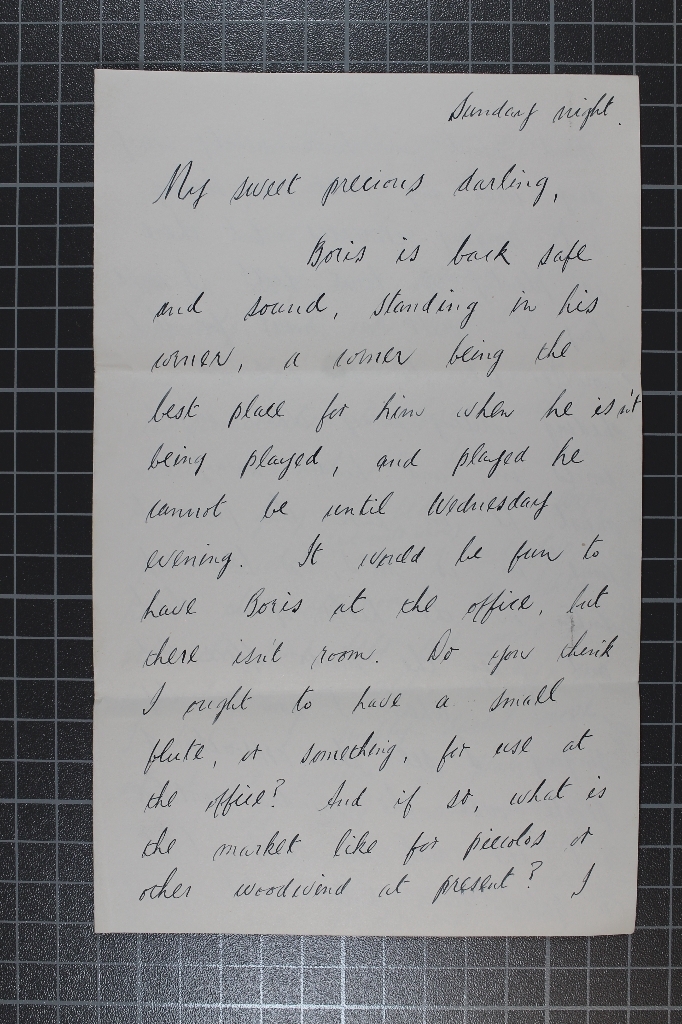 Sunday night.
My sweet precious darling,
Boris is back safe
and sound, standing in his
corner, a corner being the
best place for him when he isn't
being played, and played he
cannot be until Wednesday
evening. It would be fun to
have Boris at the office, but
there isn't room. Do you think
I ought to have a small
flute, or something, for use at
the office? And if so, what is
the market like for piccolos or
other woodwind at present? I